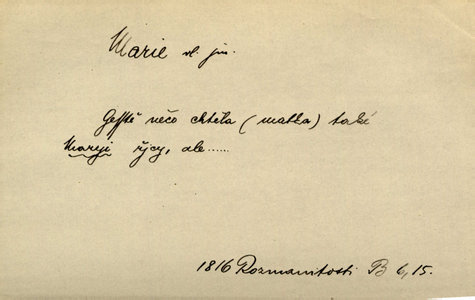 Marie vl. jm.
Gesstě něco chtěla (matka) také
Maryi řjcy, ale......
1816 Rozmanitosti B 6, 15.